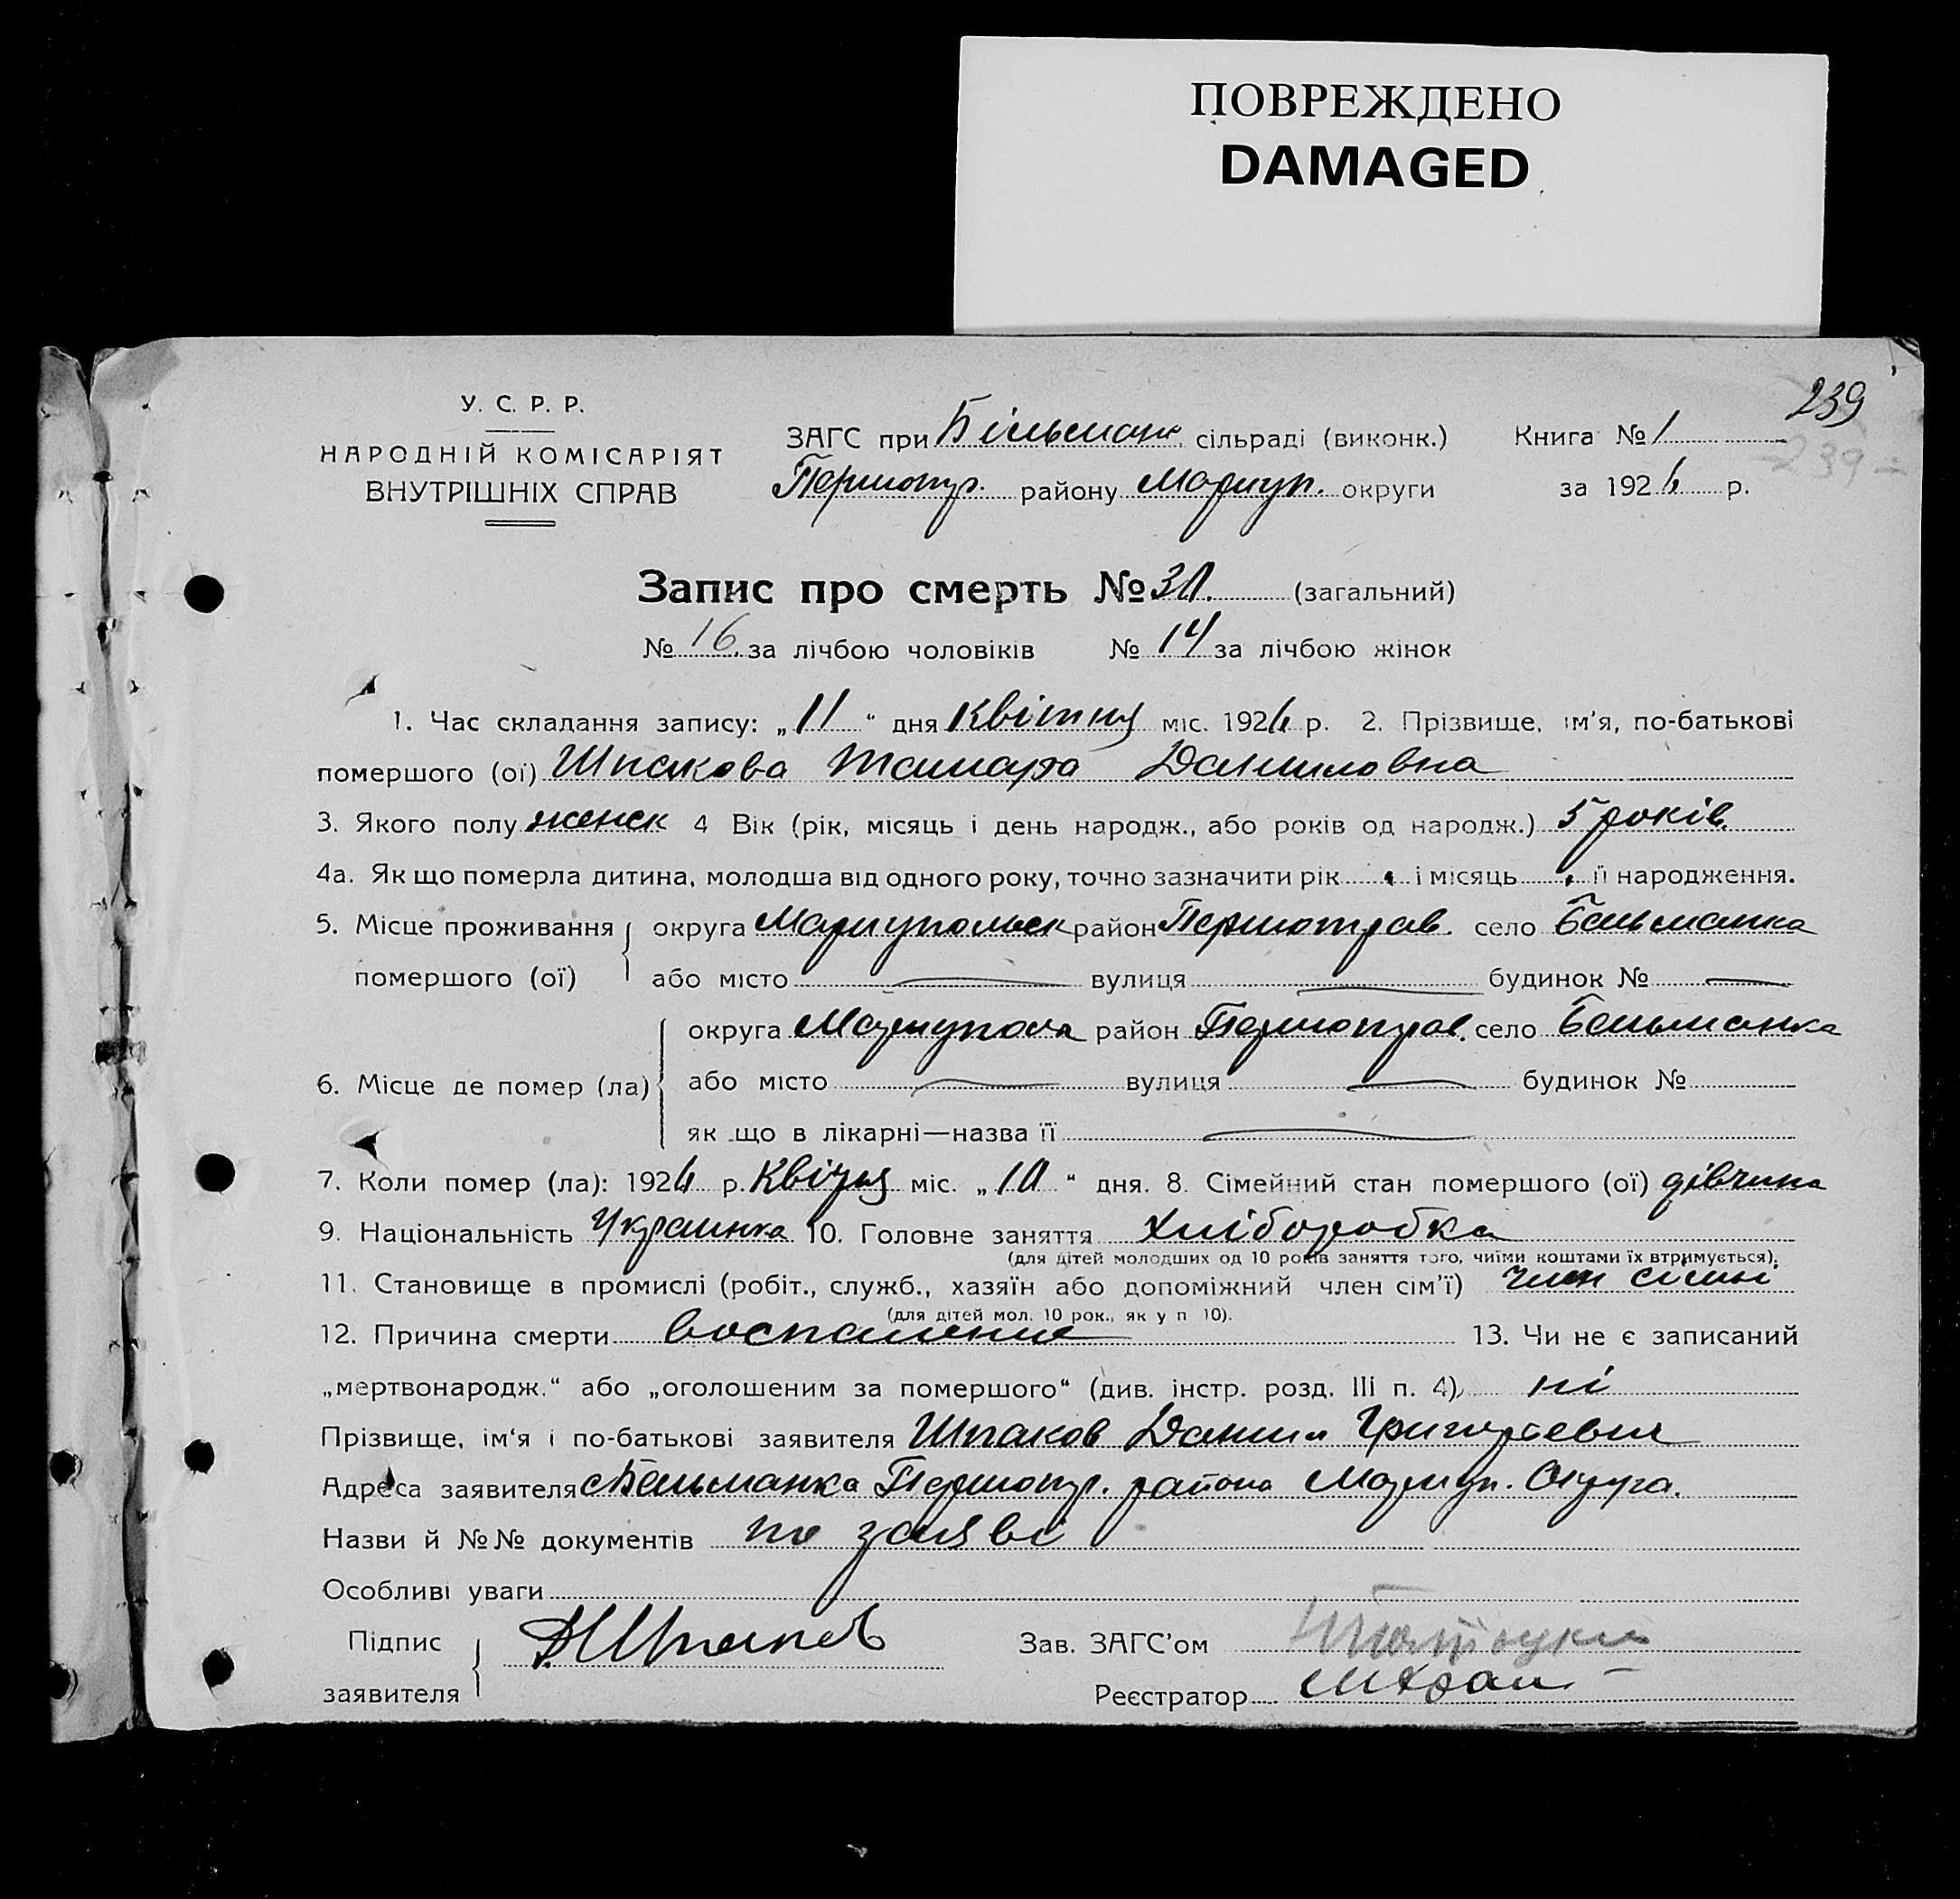 ПОВРЕЖДЕНО
DAMAGED
239
239
У. С. Р. Р.
НАРОДНІЙ КОМІСАРІЯТ
ВНУТРІШНІХ СПРАВ
ЗАГС при Більманк сільраді (виконк.) Книга № 1
Першопр. району Мариуп. округи за 1926 р.
Запис про смерть № 30. (загальний)
№ 16. за лічбою чоловіків № 14 за лічбою жінок
1. Час складання запису: „11“ дня Квітня міс. 1926 р. 2. Прізвище, ім'я, по-батькові
помершого (ої) Шпакова Тамара Даниловна
3. Якого полу женск 4 Вік (рік, місяць і день народж., або років од народж.) 5 років.
4а. Як що померла дитина, молодша від одного року, точно зазначити рік і місяць її народження.
5. Місце проживання округа Мариупольск район Першотрав. село Бельманка
помершого (ої) або місто — вулиця — будинок № —
округа Мариупола район Першотрав. село Бельманка
6. Місце де помер (ла) або місто — вулиця — будинок №
як що в лікарні—назва її —
7. Коли помер (ла): 1926 р. міс. „10“ дня. 8. Сімейний стан помершого (ої) дівчина
9. Національність Украинка 10. Головне заняття Хліборобка
(для дітей молодших од 10 років заняття того, чиїми коштами їх втримується).
11. Становище в промислі (робіт., служб., хазяїн або допоміжний член сім'ї) член сімьі
(для дітей мол. 10 рок., як у п 10).
12. Причина смерти воспаление 13. Чи не є записаний
„мертвонародж.“ або „оголошеним за помершого“ (див. інстр. розд. III п. 4) ні
Прізвище, ім'я і по-батькові заявителя Шпаков Данил Григорьевич
Адреса заявителя с Бельманка Першопр. района Мариуп. Округа.
Назви й №№ документів по заяві
Особливі уваги
Підпис Д. Шпаков Зав. ЗАГС'ом
заявителя Реєстратор